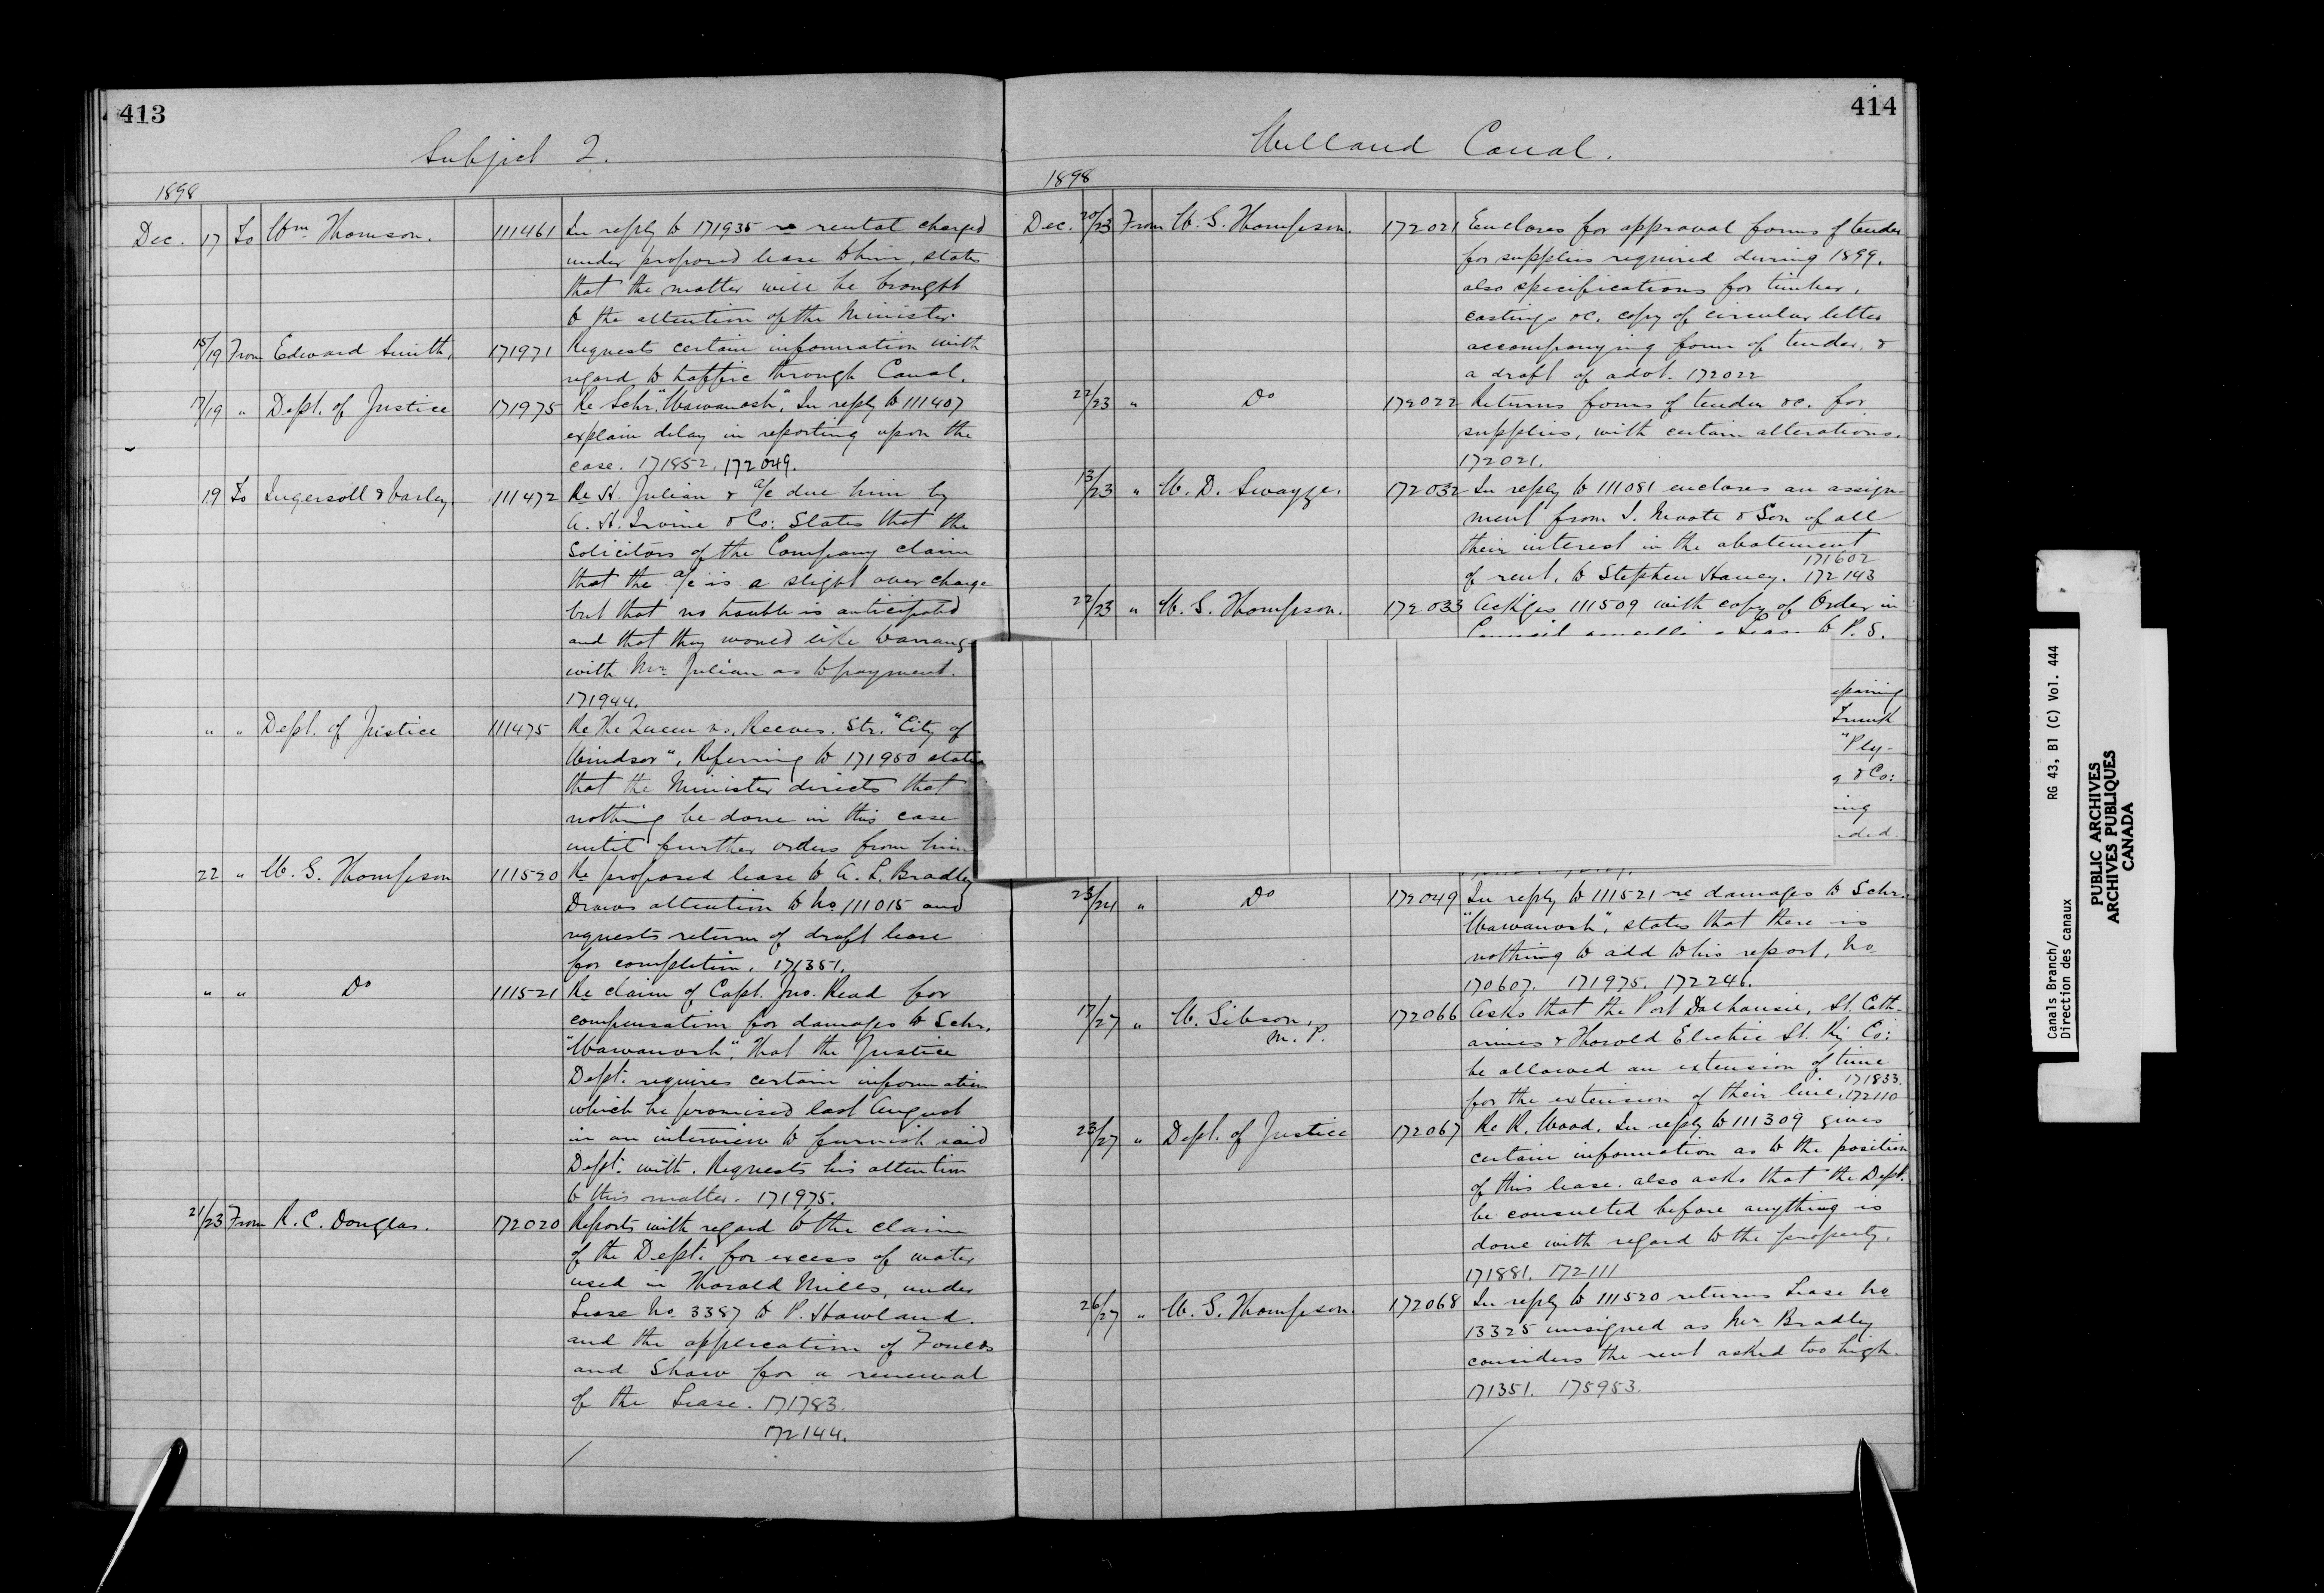 413
Subject 2.
1898
Dec. 17 To Wm. Thomson. 111461 In reply to 171935 re rental charged
under proposed lease to him, states
that the matter will be brought
to the attention of the Minister.
15/19 From Edward Smith, 171971 Requests certain information with
regard to traffic through Canal.
17/19 " Dept. of Justice 171975 Re Schr. "Wawanosh". In reply to 111407
explain delay in reporting upon the
case. 171852. 172049.
19 To Ingersoll & Varley. 111472 Re H. Julian & a/c due him by
A. H. Irvine & Co: States that the
Solicitors of the Company claim
that the a/c is a slight over charge
but that no trouble is anticipated
and that they would like to arrange
with Mr. Julian as to payment.
171944.
" " Dept. of Justice 111475 Re The Queen vs. Reeves. Str. "City of
Windsor", Referring to 171950 states
that the Minister directs that
nothing be done in this case
until further orders from him
22 " W. G. Thompson 111520 Re proposed lease to A. L. Bradley
Draws attention to No 111015 and
requests return of draft lease
for completion. 171351.
" " Do 111521 Re claim of Capt. Jno. Read for
compensation for damages to Schr.
"Wawanosh", that the Justice
Dept. requires certain information
which he promised last August
in an interview to furnish said
Dept. with. Requests his attention
to this matter. 171975.
21/23 From R. C. Douglas. 172020 Reports with regard to the claim
of the Dept. for excess of water
used in Thorold Mills, under
Lease No. 3387 to P. Howland.
and the application of
and Shaw for a renewal
of the Lease. 171783.
172144.
414
Welland Canal.
1898
Dec. 20/23 From W. G. Thompson. 172021 Encloses for approval forms of tender
for supplies required during 1899.
also specifications for timber,
castings &c. copy of circular letter
accompanying form of tender. &
a draft of advt. 172022
22/23 " Do 172022 Returns forms of tender &c. for
supplies, with certain alterations.
172021.
13/23 " W. D. Swayze. 172032 In reply to 111081 encloses an assign-
ment from J. Moote & Son of all
their interest in the abatement
of rent, to Stephen Haney. 171602
172143
22/23 " W. G. Thompson. 172033 Ackges 111509 with copy of Order in
Council cancelling Lease to P. S.
epairing
Trunk
"Ply-
g & Co:
ing
ded.
23/24 " Do 172049 In reply to 111521 re damages to Schr.
"Wawanosh", states that there is
nothing to add to his report, No
170607. 171975. 172246.
17/27 " W. Gibson, M. P. 172066 Asks that the Port Dalhousie, St. Cath-
arines & Thorold Electric St. Ry Co:
be allowed an extension of time
for the extension of their line. 171833.
172110
23/27 " Dept. of Justice 172067 Re R. Wood. In reply to 111309 gives
certain information as to the position
of this lease. also asks that the Dept.
be consulted before anything is
done with regard to the property.
171881. 172111
26/27 " W. G. Thompson. 172068 In reply to 111520 returns Lease No
13325 unsigned as Mr. Bradley
considers the rent asked too high.
171351. 175953.
Canals Branch/ RG 43, B1 (C) Vol. 444
Direction des canaux
PUBLIC ARCHIVES
ARCHIVES PUBLIQUES
CANADA